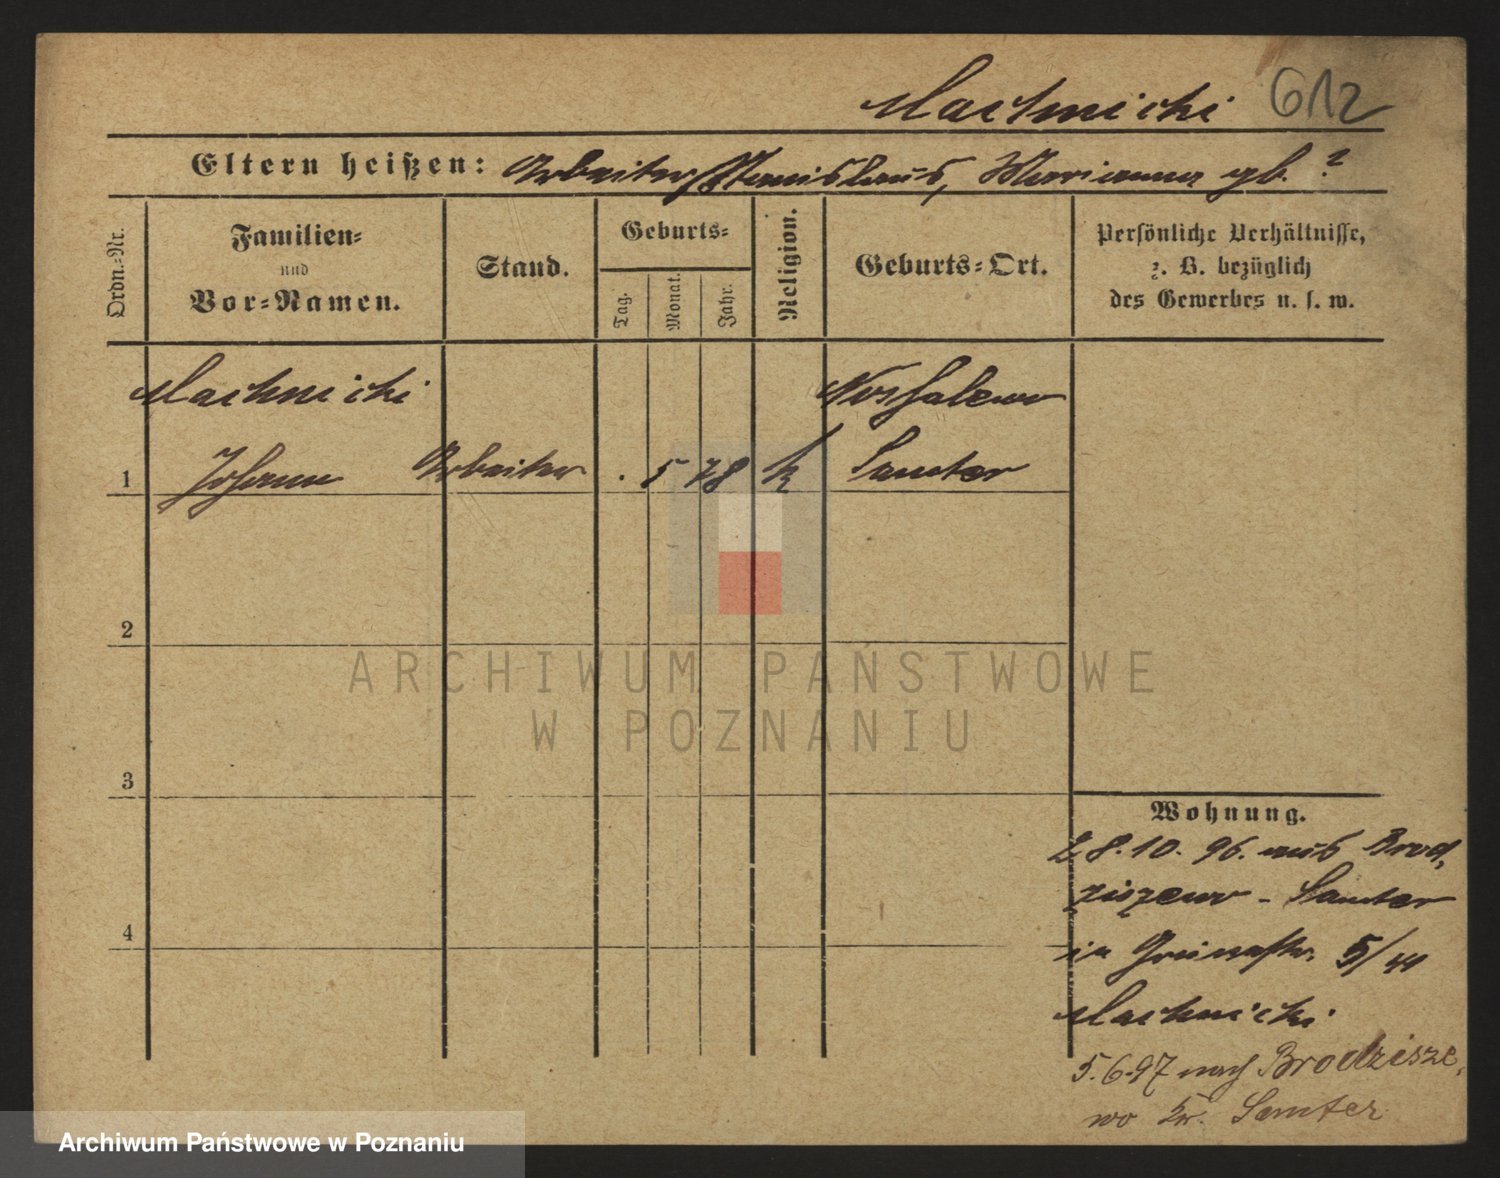 Machnicki 612
Eltern heißen: Arbeiter Stanislaus, Marianna gb. ?
Ordn.-Nr.
Familien-
und
Vor-Namen.
Stand.
Geburts-
Tag.
Monat.
Jahr.
Religion.
Geburts-Ort.
Persönliche Verhältnisse,
z. B. bezüglich
des Gewerbes u. s. w.
Machnicki
1 Johann Arbeiter . 5 78 k Samter
2
3
4
Wohnung.
28.10.96. aus Brod,
ziszewo - Samter
in 5/
Machnicki
5.6.97 nach Brodzisze,
wo Kr. Samter
ARCHIWUM PAŃSTWOWE
W POZNANIU
Archiwum Państwowe w Poznaniu